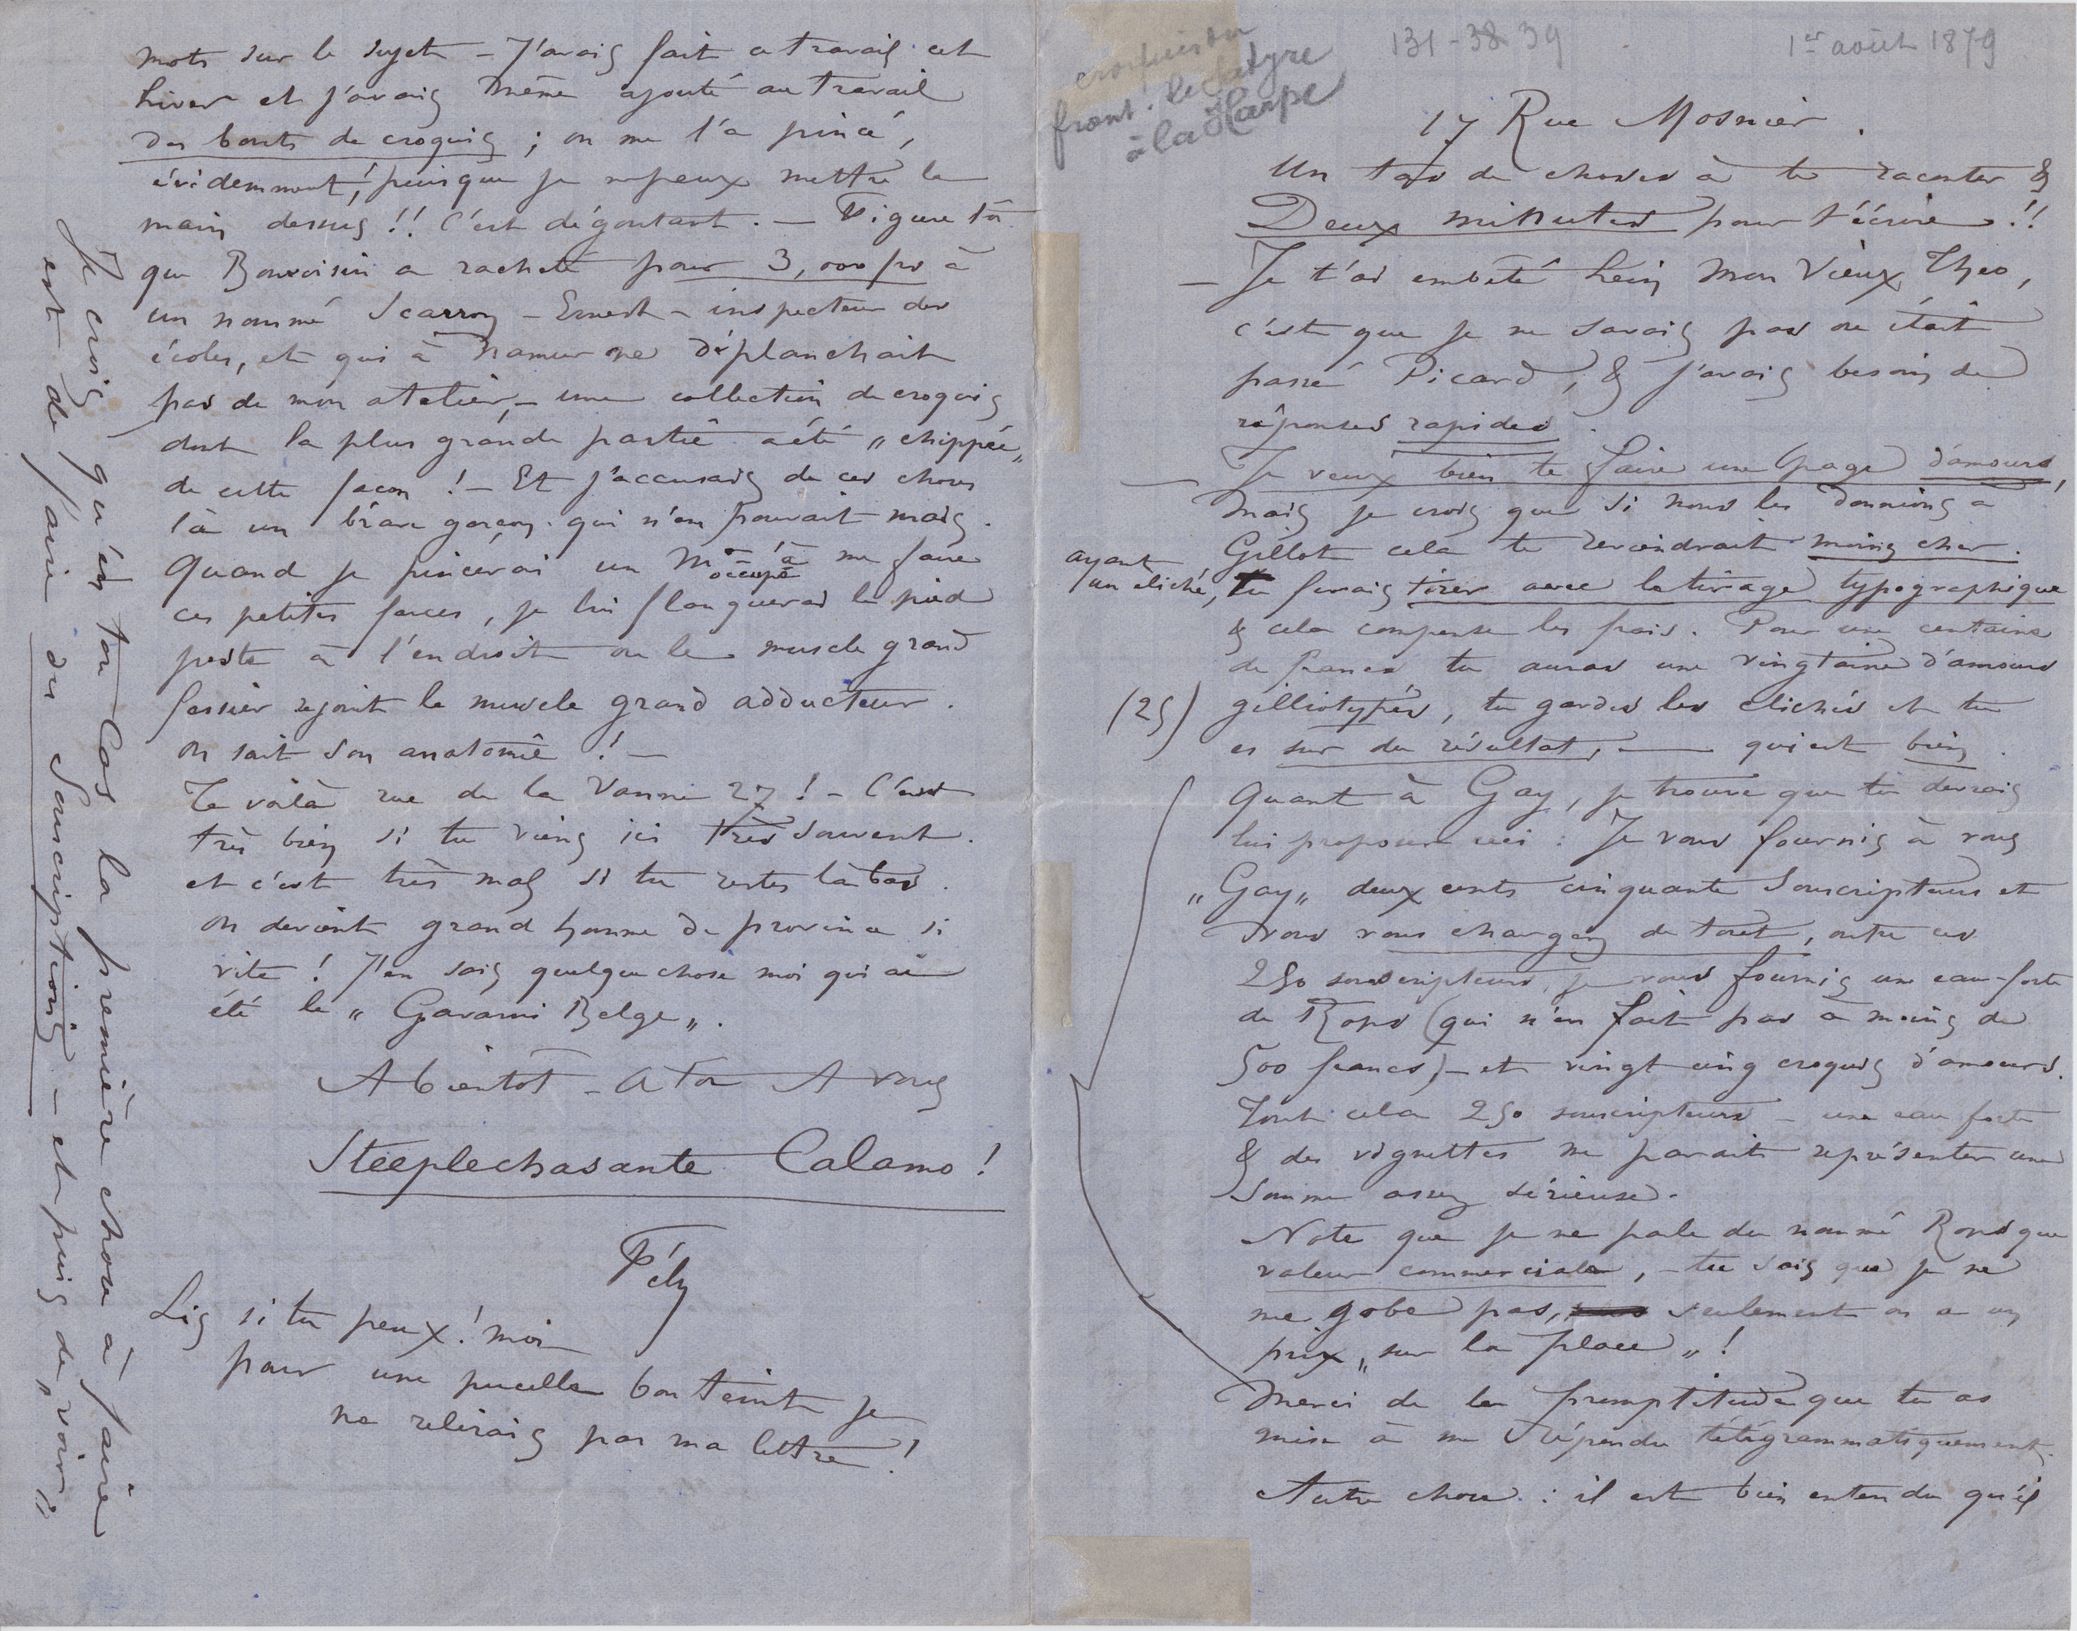 croquis du
front. le Satyre
à la Harpe
131-38.39
1er août 1879
17 Rue Mosnier.
Un tas de choses à te raconter &
Deux minutes pour t'écrire !!
— Je t'ai embêté hein mon vieux Theo,
c'est que je ne savais pas où était
passé Picard, & j'avais besoin de
réponses rapides.
— Je veux bien te faire une page d'amours,
mais je crois que si nous les donnions à
Gillot cela te reviendrait moins cher.
ayant
un cliché, Tu ferais tirer avec le tirage typographique
& cela compense les frais. Pour une centaine
de francs, tu auras une vingtaine d'amours
(25) gilliotypés, tu gardes les clichés et tu
es sur du résultat, — qui est bien.
Quant à Gay, je trouve que tu devrais
lui proposer ceci : Je vous fournis à vous
„Gay„ deux cents cinquante souscripteurs et
vous vous chargez de tout, outre ces
250 souscripteurs, je vous fournis une eau-forte
de Rops (qui n'en fait pas à moins de
500 francs) – et vingt cinq croquis d'amours.
Tout cela 250 souscripteurs – une eau forte
& des vignettes me parait représenter une
somme assez sérieuse.
Note que je ne parle du nommé Rops que
valeur commerciale, – tu sais que je ne
me gobe pas, seulement on a un
prix „sur la place„ !
Merci de la promptitude que tu as
mise à me répondre télégrammatiquement.
Autre chose : il est bien entendu qu'il
mots sur le sujet – J'avais fait ce travail cet
hiver et j'avais même ajouté au travail
des bouts de croquis ; on me l'a pincé,
évidemment ! puisque je ne peux mettre la
main dessus !! C'est dégoutant. — Figure toi
que Bonvoisin a racheté pour 3,000 frs à
un nommé Scarron – Ernest – inspecteur des
écoles, et qui à Namur ne déplanchait
pas de mon atelier, – une collection de croquis
dont la plus grande partie a été „chippée„
de cette façon ! – Et j'accusais de ces choses
là un brave garçon qui n'en pouvait mais.
Quand je pincerai un Mr occupé à me faire
ces petites farces, je lui flanquerai le pied
juste à l'endroit où le muscle grand
fessier rejoint le muscle grand adducteur.
On sait son anatomie ! –
Te voilà rue de la Vanne 27 ! – C'est
très bien si tu viens ici très souvent.
et c'est très mal si tu restes là bas.
On devient grand homme de province si
vite ! J'en sais quelque chose moi qui ai
été le „Gavarni Belge„.
A bientot – a toi A vous
Steeplechasante Calamo !
Fély
Lis si tu peux ! moi
pour une pucelle bon teint je
ne relirais pas ma lettre !
Je crois qu'en tou-cas la première chose à faire
est de faire des Souscriptions – et puis de „voir„